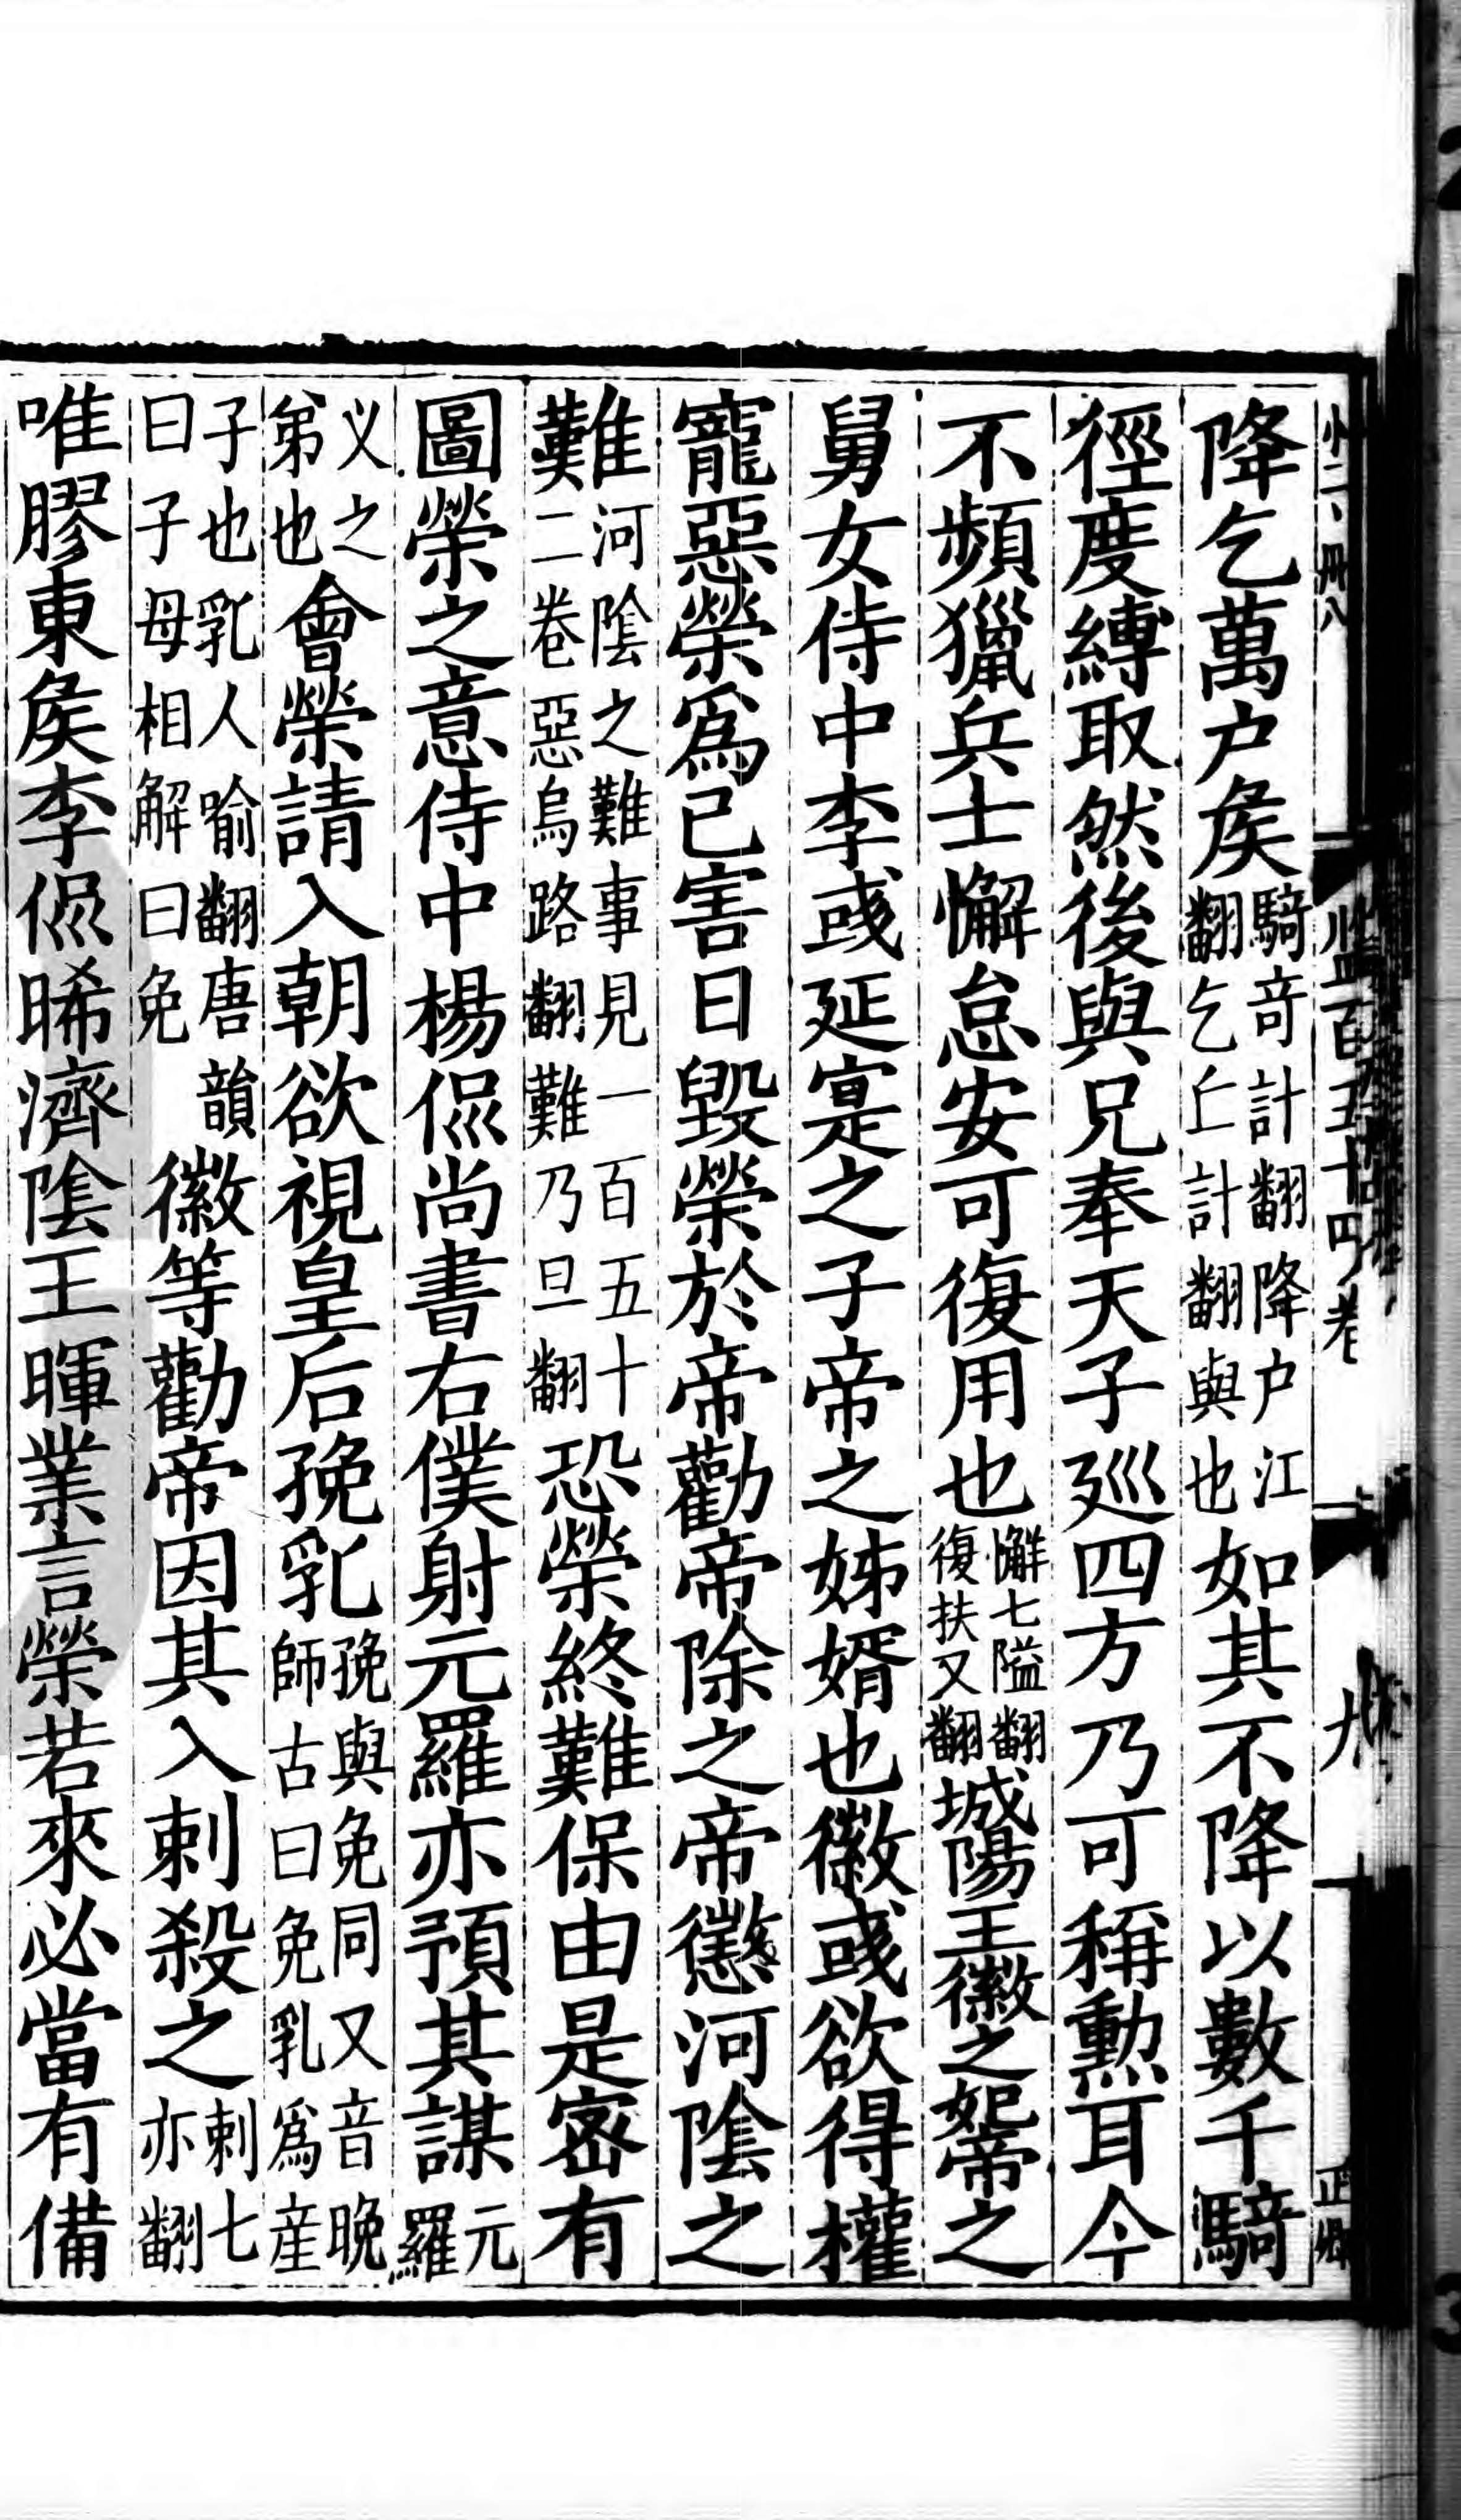 降乞萬户矦騎竒計翻降户江翻乞丘計翻與也如其不降以數千騎
徑度縳取然後與兄奉天子廵四方乃可稱勲耳今
不頻獵兵士懈怠安可復用也懈七隘翻復扶又翻城陽王徽之妃帝之
舅女侍中李彧延寔之子帝之姊婿也徽彧欲得權
寵惡榮爲已害日毀榮於帝勸帝除之帝懲河隂之
難河隂之難事見一百五十二卷惡烏路翻難乃旦翻恐榮終難保由是宻有
圖榮之意侍中楊侃尚書右僕射元羅亦預其謀元羅
义之弟也會榮請入朝欲視皇后㝃乳㝃與免同又音晚師古曰免乳爲産
子也乳人喻翻唐韻曰子母相解曰免徽等勸帝因其入刺殺之刺七亦翻
唯膠東矦李侃晞濟隂王暉業言榮若來必當有備
九
正卿